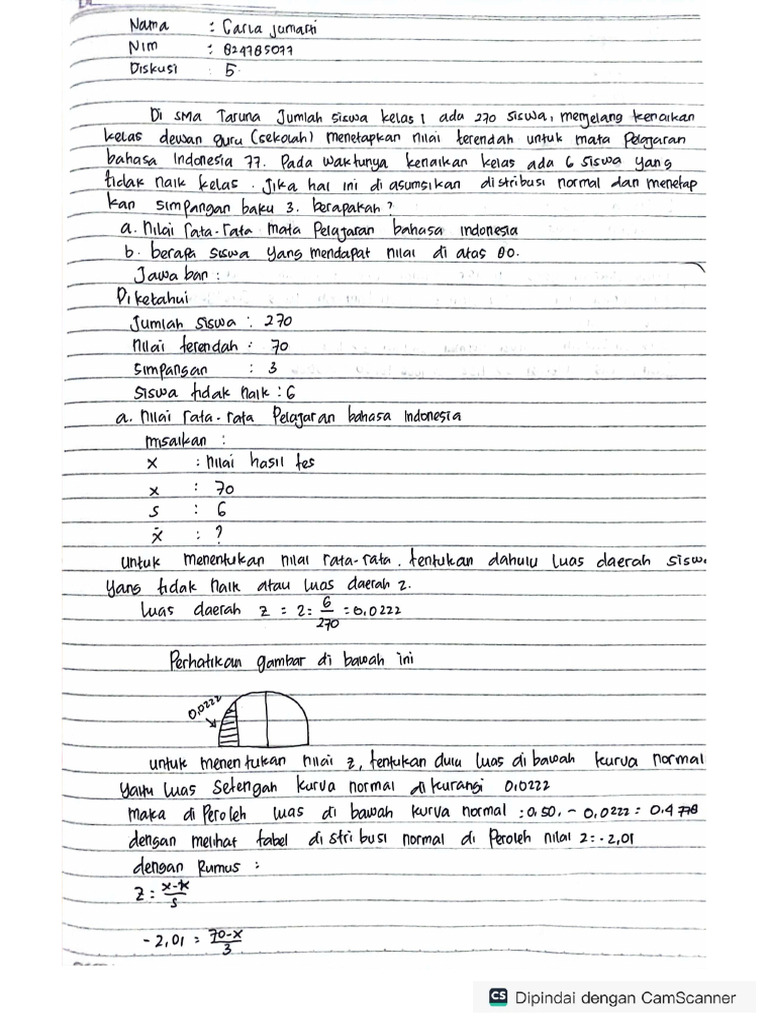 Nama : Carla Jumarti
Nim : 824785077
Diskusi : 5
Di SMA Taruna Jumlah Siswa kelas 1 ada 270 siswa, menjelang kenaikan
kelas dewan guru (sekolah) menetapkan nilai terendah untuk mata Pelajaran
bahasa Indonesia 77. Pada waktunya kenaikan kelas ada 6 siswa yang
tidak naik kelas. Jika hal ini di asumsikan distribusi normal dan menetap
kan simpangan baku 3. berapakah?
a. Nilai rata-rata mata Pelajaran bahasa indonesia
b. berapa siswa yang mendapat nilai di atas 80.
Jawaban :
Diketahui
Jumlah siswa : 270
nilai terendah : 70
simpangan : 3
siswa tidak naik : 6
a. nilai rata-rata Pelajaran bahasa Indonesia
msalkan :
x : nilai hasil tes
x : 70
s : 6
x̄ : ?
untuk menentukan nilai rata-rata. tentukan dahulu luas daerah sisw
yang tidak naik atau luas daerah z.
luas daerah z = 2 = 6/270 = 0,0222
Perhatikan gambar di bawah ini
0,0222
untuk menentukan nilai z, tentukan dulu luas di bawah kurva normal
yaitu luas setengah kurva normal di kurangi 0,0222
maka di Peroleh luas di bawah kurva normal : 0,50. - 0,0222 = 0.4778
dengan melihat tabel distribusi normal di Peroleh nilai z = -2,01
dengan Rumus :
z = x-x̄/s
-2,01 = 70-x/3
CS Dipindai dengan CamScanner